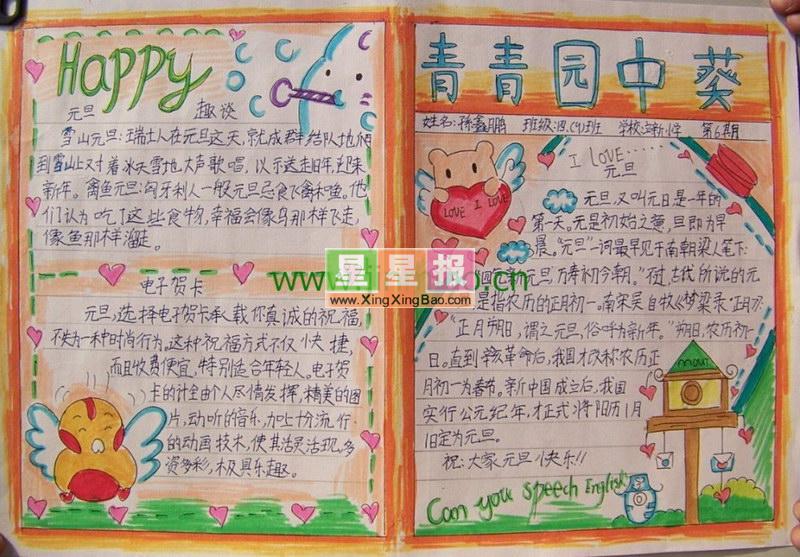 Happy
元旦 趣谈
雪山元旦:瑞士人在元旦这天,就成群结队地爬
到雪山上对着冰天雪地大声歌唱,以示送走旧年,迎来
新年。禽鱼元旦:匈牙利人一般元旦忌食飞禽和鱼。他
们认为吃了这些食物,幸福会像鸟那样飞走,
像鱼那样溜走。
电子贺卡
元旦,选择电子贺卡承载你真诚的祝福,
不失为一种时尚行为,这种祝福方式不仅快捷,
而且收费便宜,特别适合年轻人。电子贺
卡的计全由个人尽情发挥,精美的图
片,动听的音乐,加上扮流行
的动画技术,使其活灵活现,多
姿多彩,极具乐趣。
青青园中葵
姓名:孙鑫鹏 班级:四.(9)班 学校: 新小学 第6期
I LOVE......
元旦
LOVE I LOVE
元旦,又叫元日是一年的
第一天。元是初始之意,旦即为早
晨。“元旦”一词最早见于南朝梁人笔下:
元旦 万寿初今朝。”不过,古代所说的元
是指农历的正月初一。南宋吴自牧《梦梁录·正月》:
“正月朔日,谓之元旦,俗呼为新年。”朔日,农历初一
日。直到辛亥革命后,我国才改称农历正
月初一为春节。新中国成立后,我国
实行公元纪年,才正式将阳历1月
1日定为元旦。
祝:大家元旦快乐!!
Can you speech English
星星报
www.XingXingBao.com